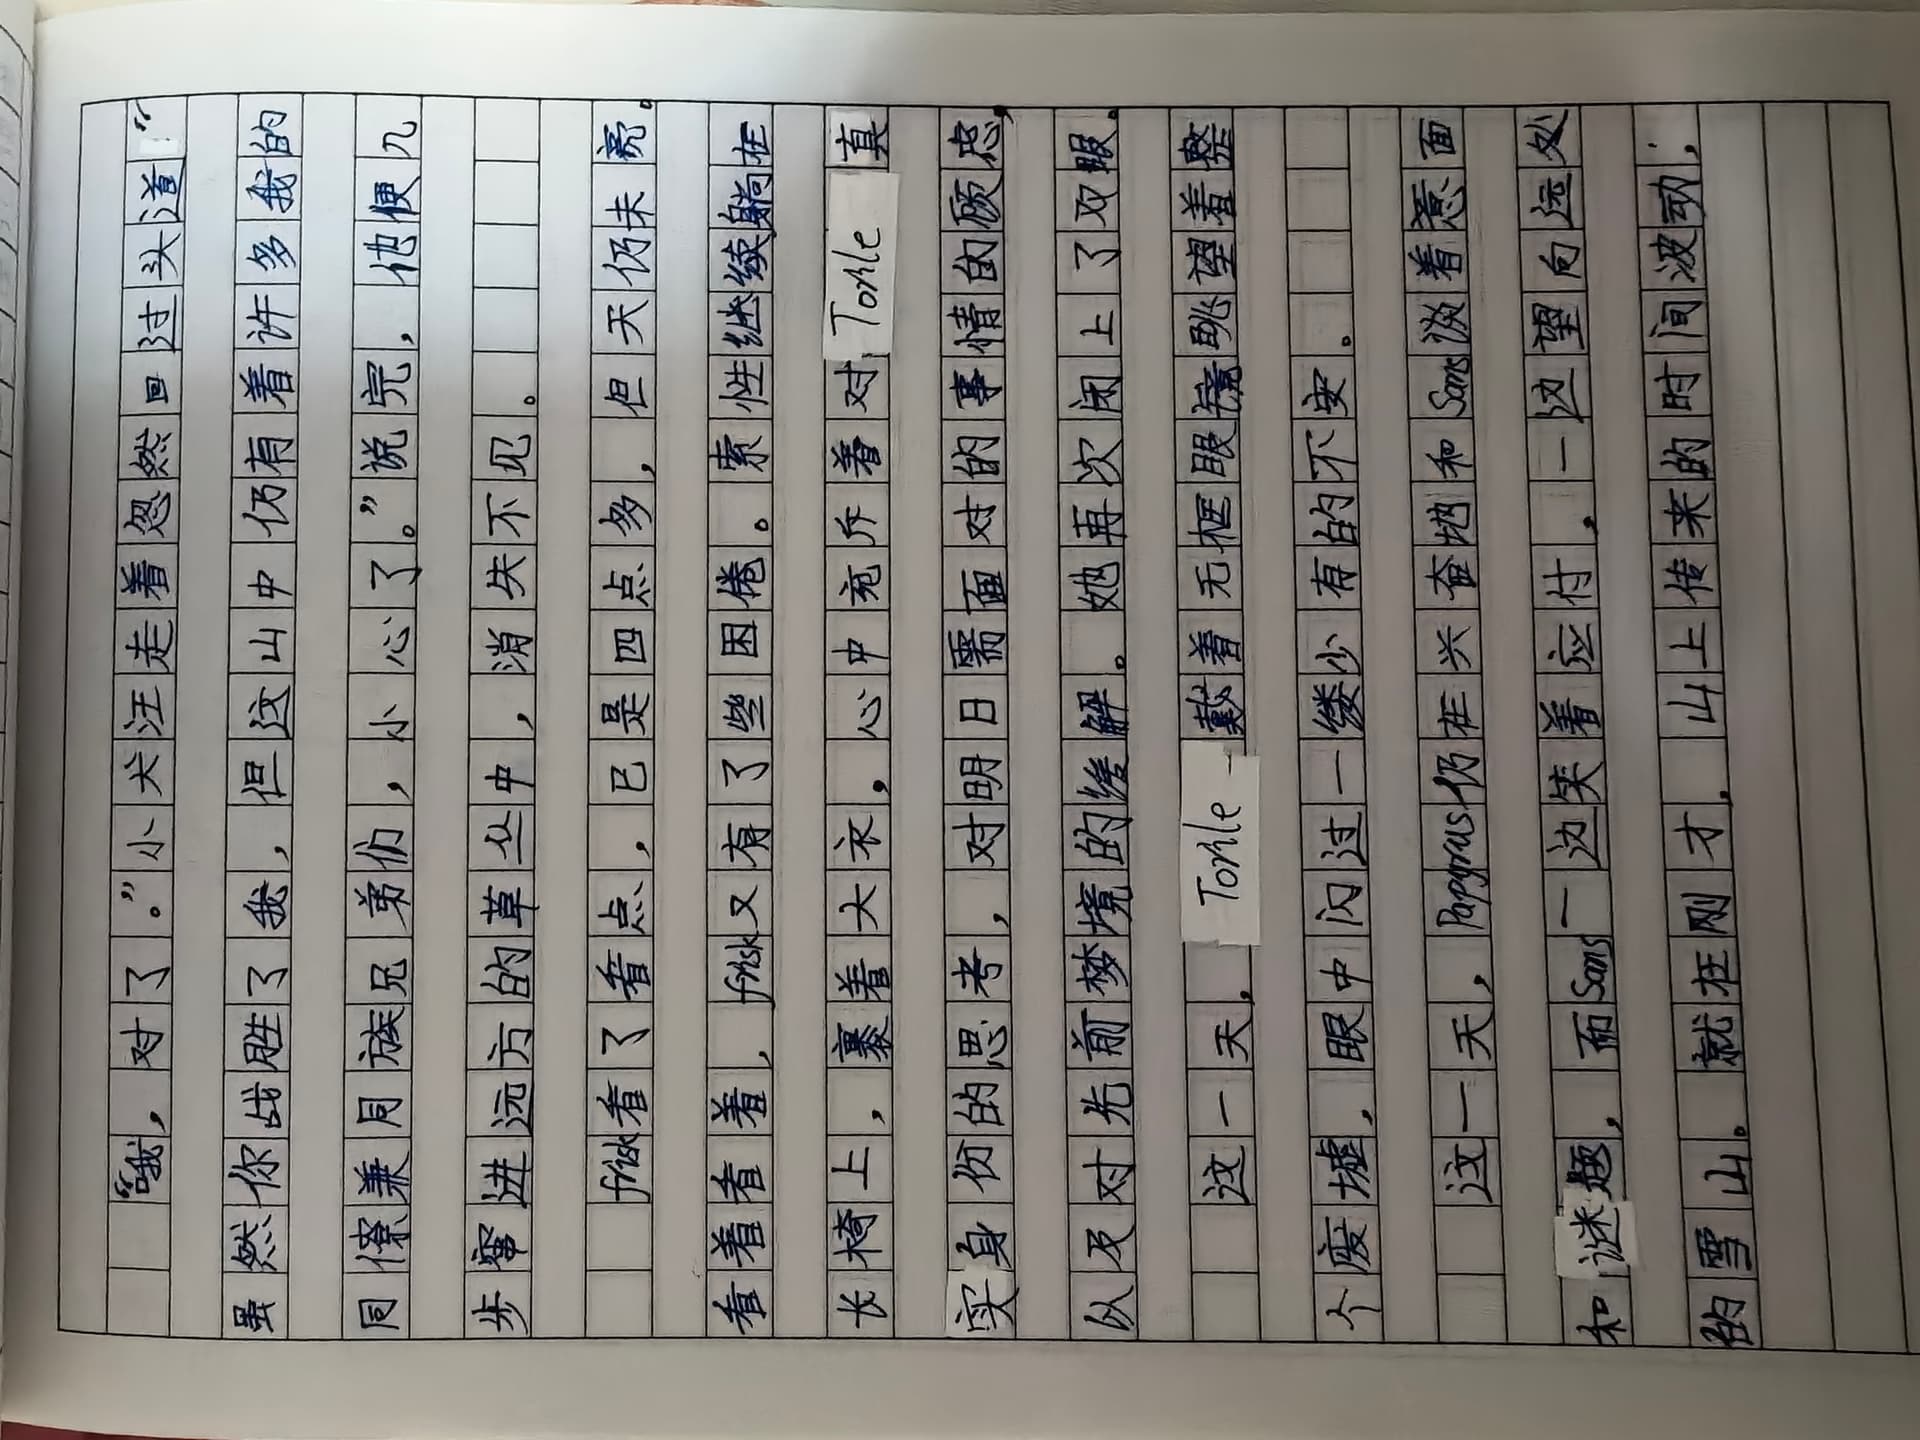 “哦，对了。”小犬汪走着忽然回过头道：“
虽然你战胜了我，但这山中仍有着许多我的
同僚兼同族兄弟们，小心了。”说完，他便几
步窜进远方的草丛中，消失不见。
frisk看了看点，已是四点多，但天仍未亮。
看着看着，frisk又有了些困倦。索性继续躺在
长椅上，裹着大衣，心中充斥着对Torile真
实身份的思考，对明日需面对的事情的顾虑，
以及对先前梦境的缓解。她再次闭上了双眼。
这一天，Torile戴着无框眼镜眺望着整
个废墟，眼中闪过一缕少有的不安。
这一天，Papyrus仍在兴奋地和Sans谈着意面
和谜题，而Sans一边笑着应付，一边望向远处
的雪山。就在刚才，山上传来的时间波动，